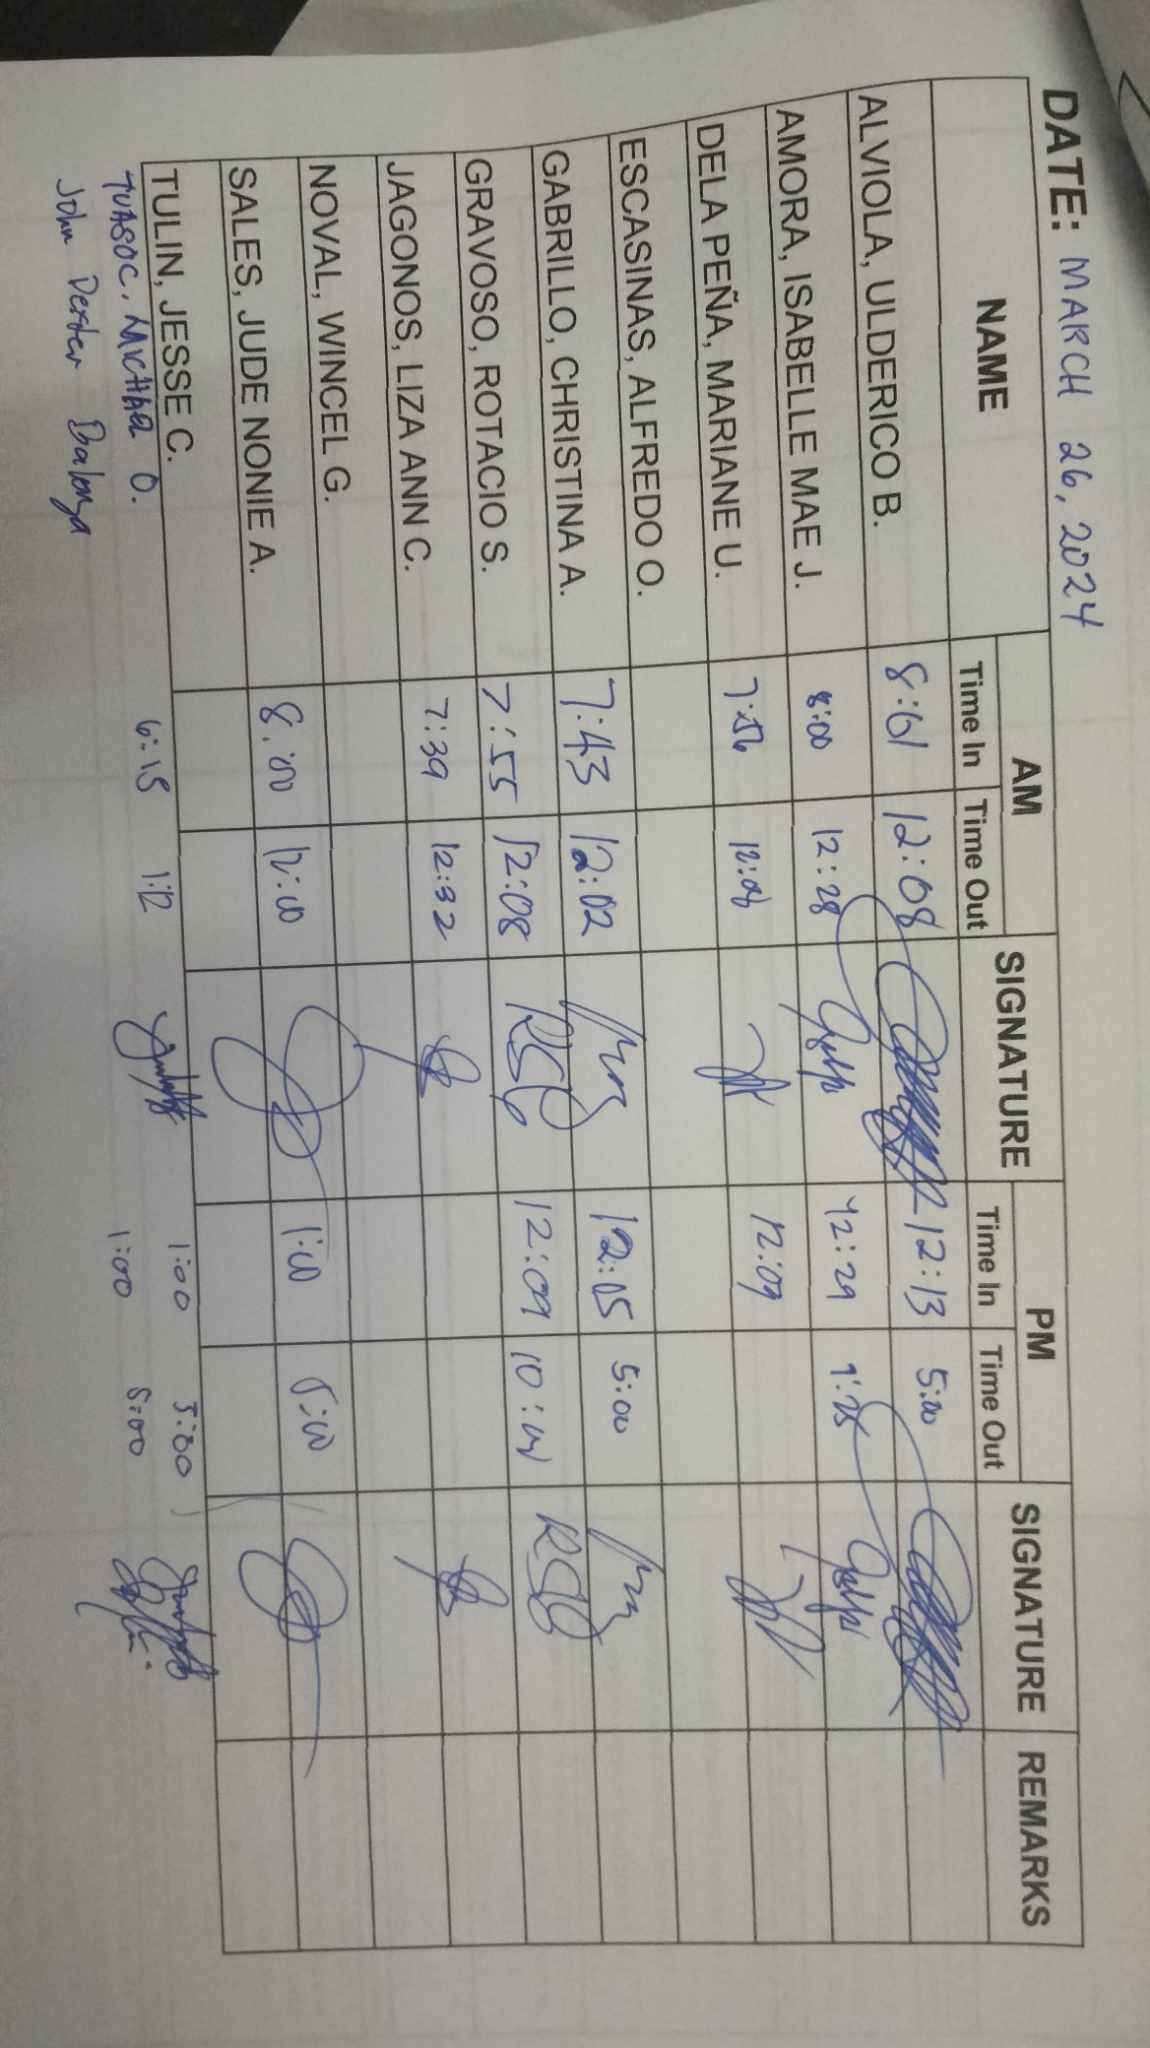 DATE: MARCH 26, 2024
NAME AM SIGNATURE PM SIGNATURE REMARKS
Time In Time Out Time In Time Out
ALVIOLA, ULDERICO B. 8:01 12:08 12:13 5:00
AMORA, ISABELLE MAE J. 8:00 12:28 12:29
DELA PEÑA, MARIANE U. 7:56 12:06 12:09
ESCASINAS, ALFREDO O.
GABRILLO, CHRISTINA A. 7:43 12:02 12:05 5:00
GRAVOSO, ROTACIO S. 7:55 12:08 RSG 12:09 RSG
JAGONOS, LIZA ANN C. 7:39 12:32
NOVAL, WINCEL G.
SALES, JUDE NONIE A. 8:00 12:00 1:00 5:00
TULIN, JESSE C.
TUASOC, MICHAEL O. 6:15 1:12 1:00 5:00
John Dexter 1:00 5:00